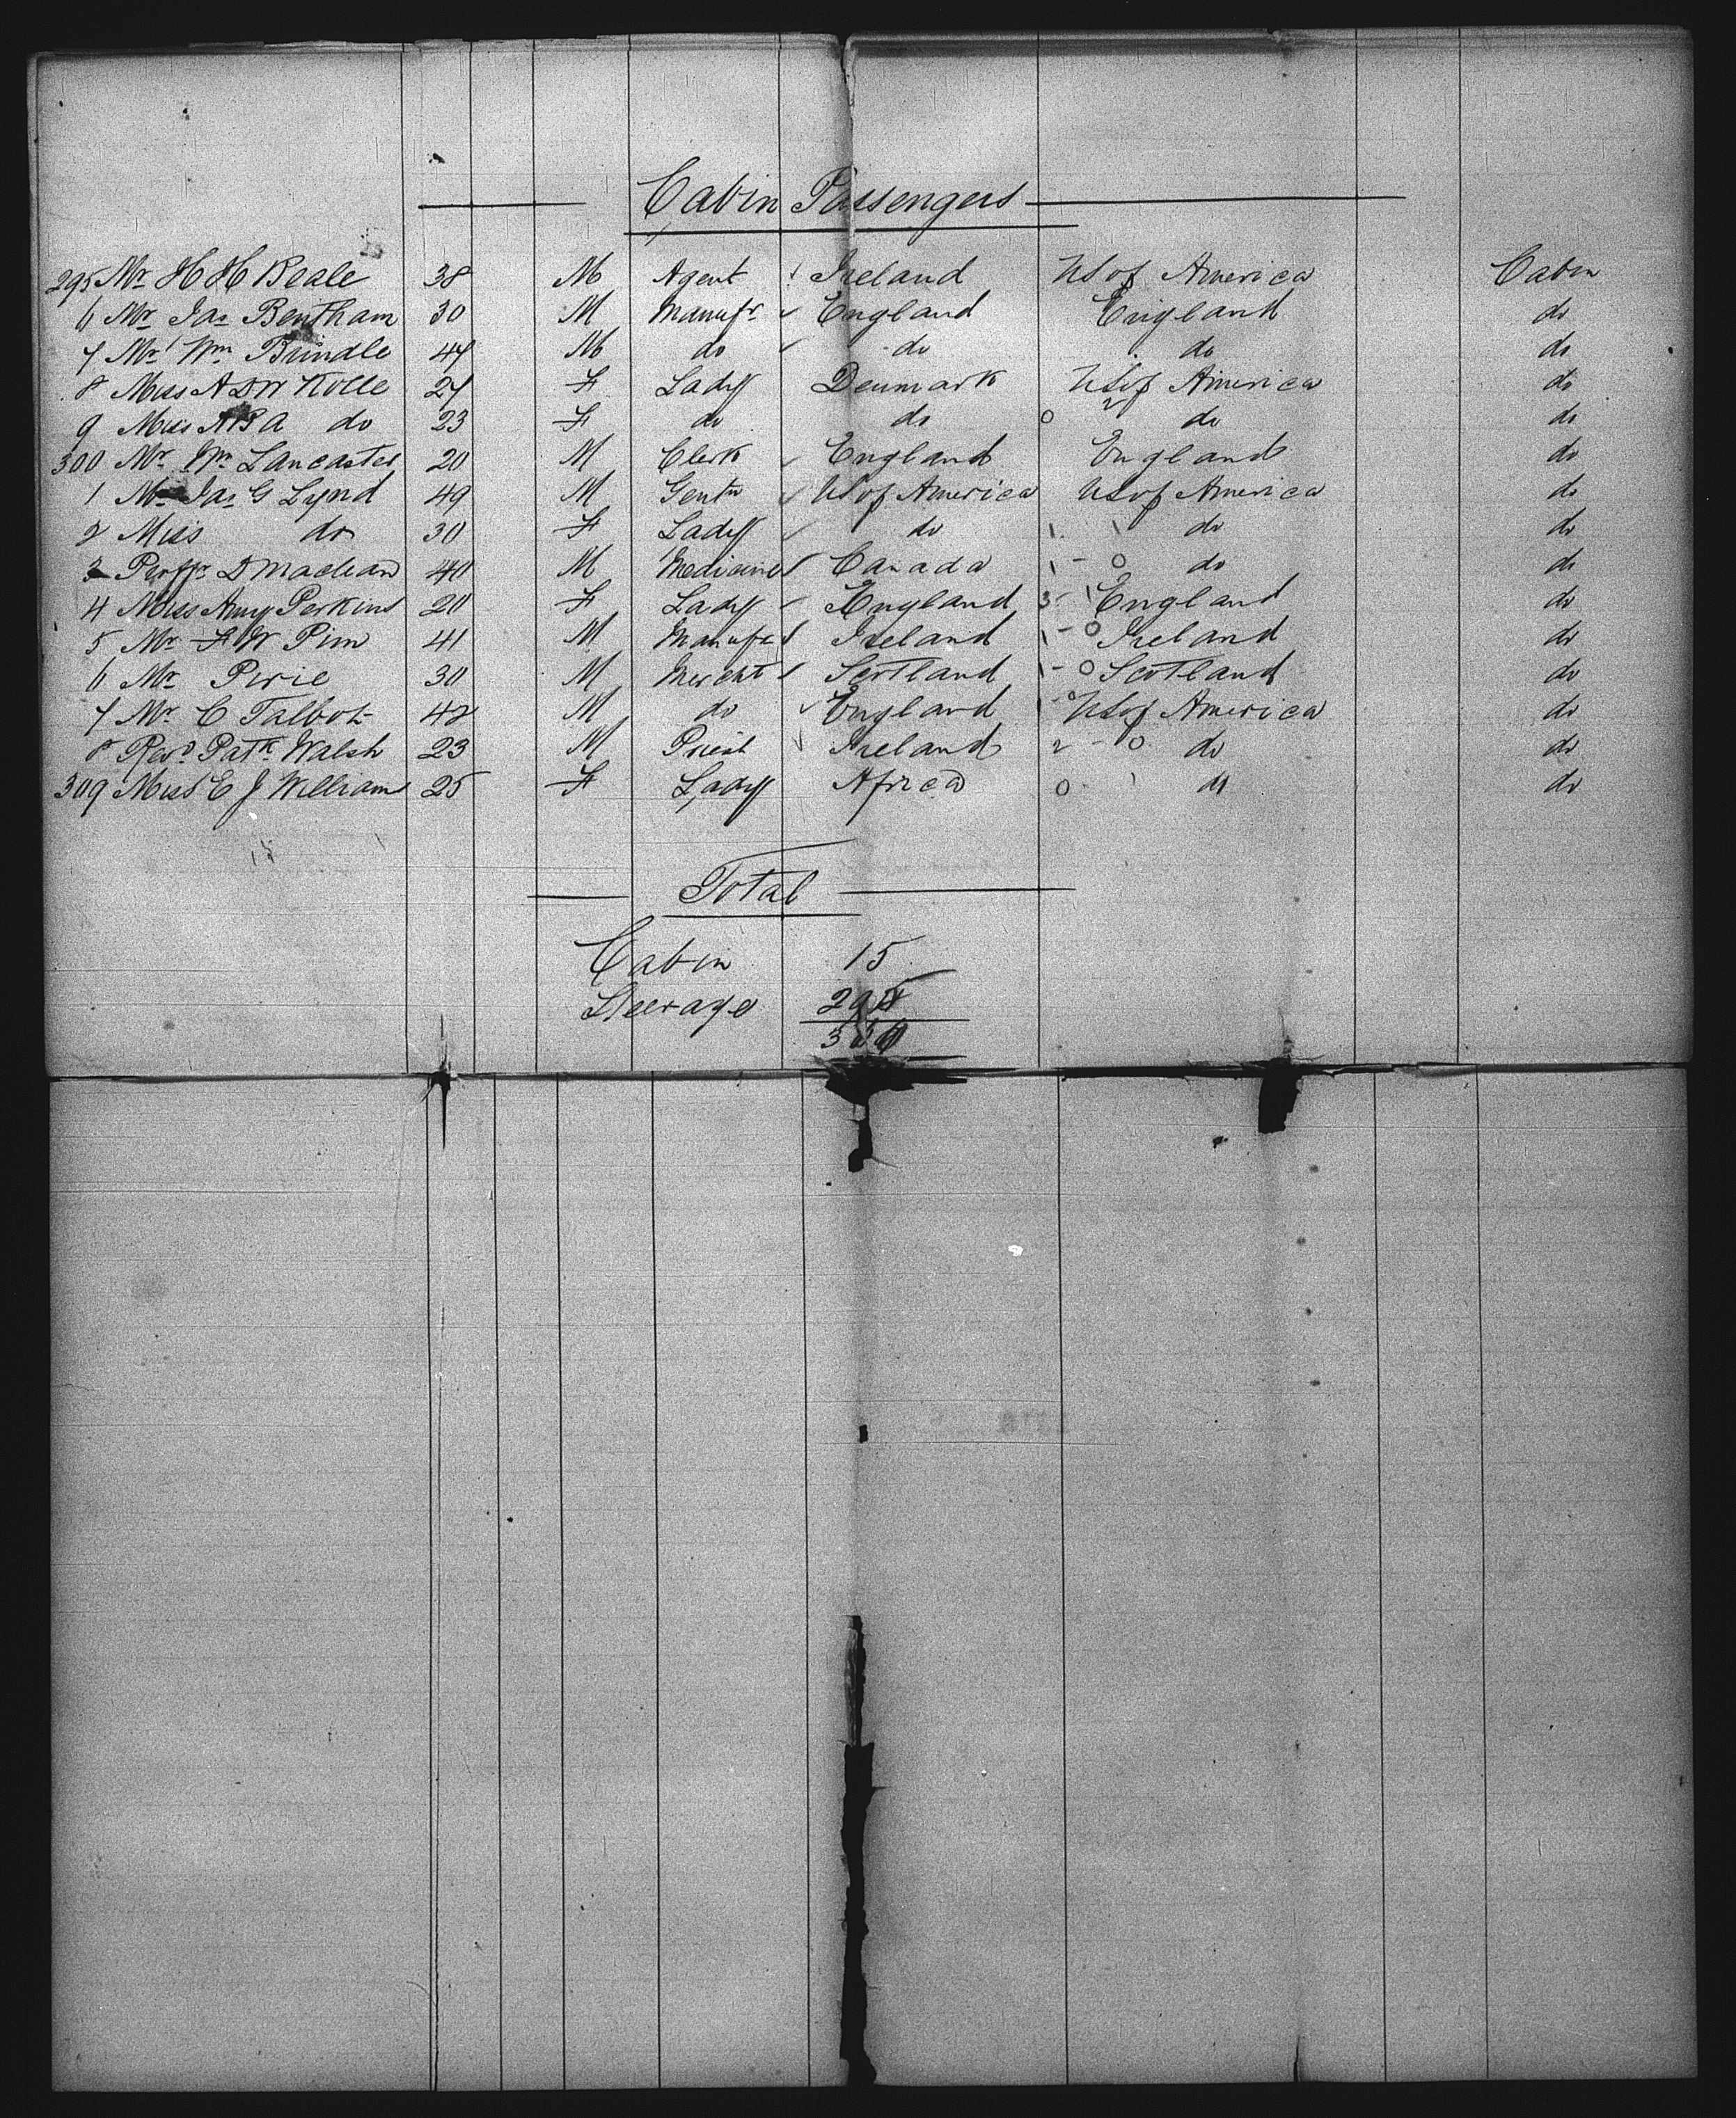 Cabin Passengers
295 Mr H H Beale 38 M Agent Ireland US of America Cabin
6 Mr Jas Bentham 30 M Manufr England England do
7 Mr Wm Brindle 44 M do do do do
8 Miss A D W Kolle 27 F Lady Denmark US of America do
9 Miss A B A do 23 F do do do do
300 Mr Wm Lancaster 20 M Clerk England England do
1 Mr Jas G Lynd 49 M Gentn US of America US of America do
2 Miss do 30 F Lady do do do
3 Proffr D Maclean 40 M Medicine Canada do do
4 Miss Amy Perkins 20 F Lady England England do
5 Mr F W Pim 41 M Manufr Ireland Ireland do
6 Mr Pirie 30 M Mercht Scotland Scotland do
7 Mr C Talbot 42 M do England US of America do
8 Revd Patk Walsh 23 M Priest Ireland do do
309 Miss E J Williams 25 F Lady Africa do do
Total
Cabin 15
Steerage